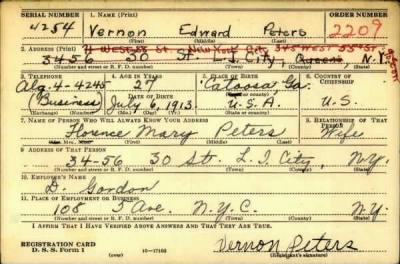 SERIAL NUMBER 1. NAME (Print) ORDER NUMBER
4254 Vernon Edward Peters 2209
(First) (Middle) (Last)
2. ADDRESS (Print) 345 West 55th St
3456 30 St. L.I. City, Queens, N.Y.
(Number and street or R. F. D. number) (Town) (County) (State)
3. TELEPHONE 4. AGE IN YEARS 5. PLACE OF BIRTH 6. COUNTRY OF CITIZENSHIP
4-4245 27 Ga.
(Business) DATE OF BIRTH
July 6, 1913 U.S.A. U.S.
(Exchange) (Number) (Mo.) (Day) (Yr.) (State or country)
7. NAME OF PERSON WHO WILL ALWAYS KNOW YOUR ADDRESS 8. RELATIONSHIP OF THAT PERSON
Florence Mary Peters Wife
(Mr., Mrs., Miss) (First) (Middle) (Last)
9. ADDRESS OF THAT PERSON
34-56 30 Str. L.I. City, N.Y.
(Number and street or R. F. D. number) (Town) (County) (State)
10. EMPLOYER'S NAME
D. Gordon
11. PLACE OF EMPLOYMENT OR BUSINESS
108 5 Ave. N.Y.C. N.Y.
(Number and street or R. F. D. number) (Town) (County) (State)
I AFFIRM THAT I HAVE VERIFIED ABOVE ANSWERS AND THAT THEY ARE TRUE.
REGISTRATION CARD
D. S. S. Form 1 16—17105 Vernon Peters
(Registrant's signature)